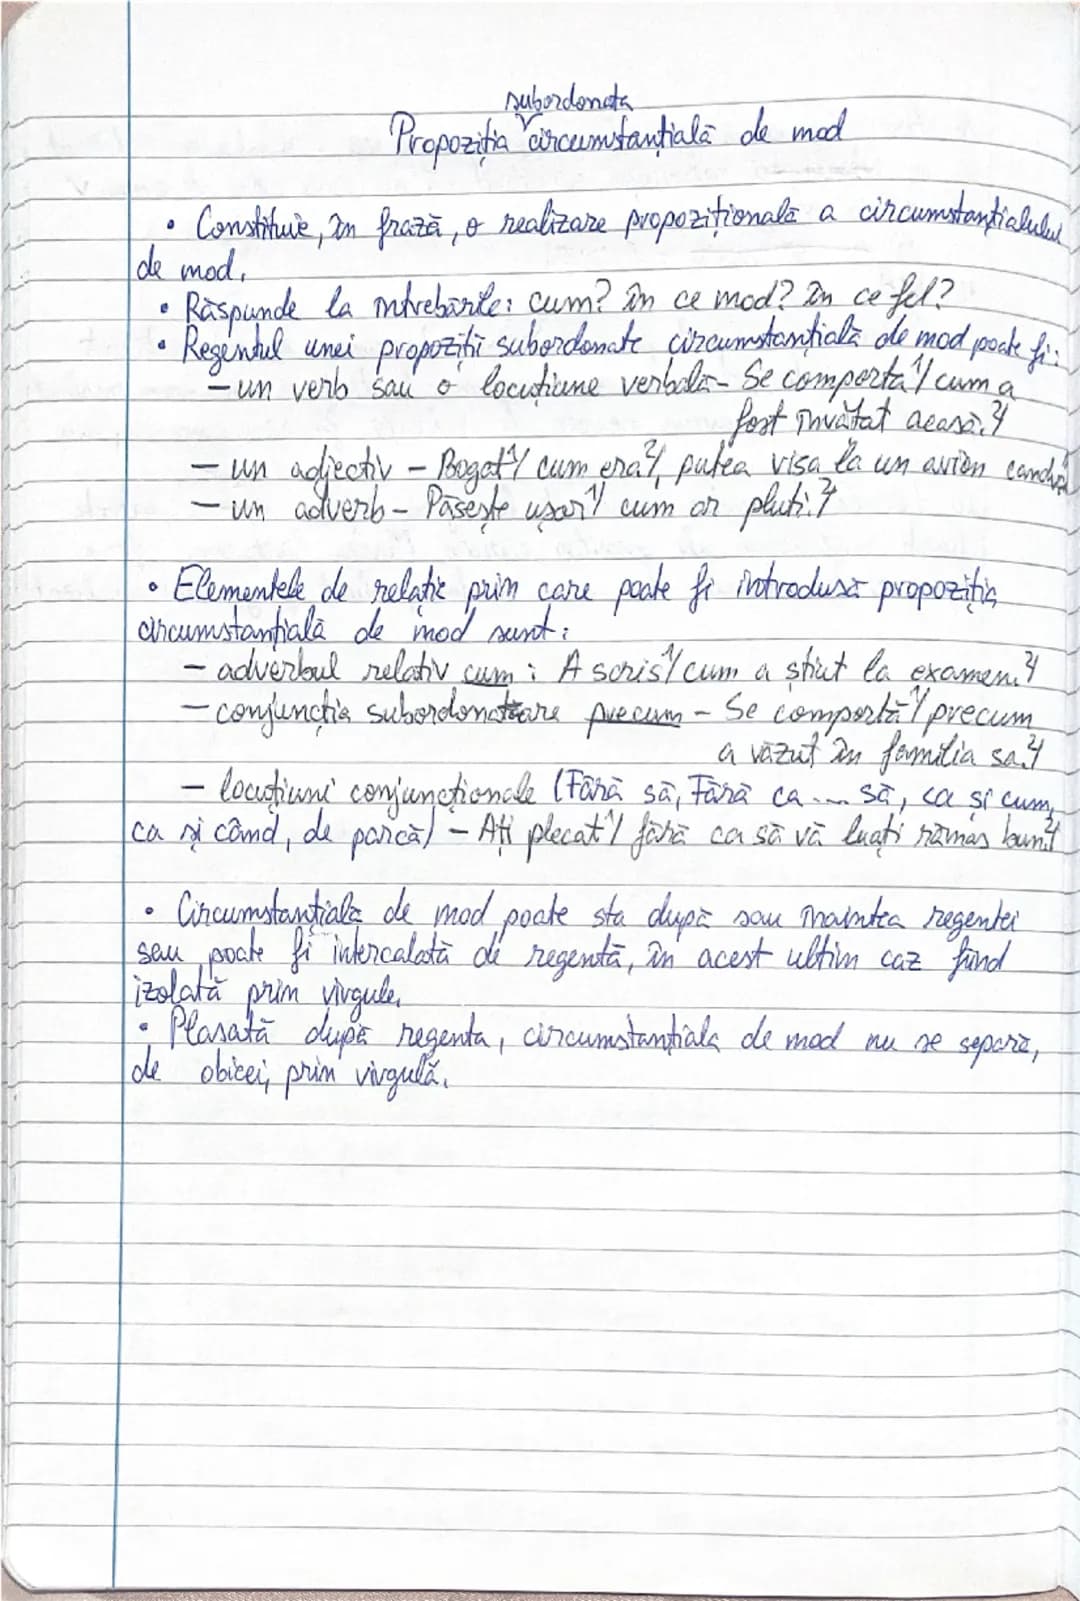 subordonata
Propoziția circumstanțială de mod
• Constituie, în frază, o realizare propozițională a circumstanțialului
de mod.
• Răspunde la întrebările: cum? în ce mod? în ce fel?
• Regentul unei propoziții subordonate circumstanțială de mod poate fi:
- un verb sau o locuțiune verbală - Se comportă 1/ cum a
fost învățat acasă. 2/
- un adjectiv - Bogat 1/ cum era 2/, putea visa la un avion cândva
- un adverb - Pășește ușor 1/ cum ar pluti. 2/
• Elementele de relație prin care poate fi introdusă propoziția
circumstanțială de mod sunt:
- adverbul relativ cum: A scris 1/ cum a știut la examen. 2/
- conjuncția subordonatoare precum - Se comportă 1/ precum
a văzut în familia sa. 2/
- locuțiuni conjuncționale (Fără să, Fără ca ... să, ca și cum,
ca și când, de parcă) - Ați plecat 1/ fără ca să vă luați rămas bun. 2/
• Circumstanțiala de mod poate sta după sau înaintea regentei
sau poate fi intercalată de regentă, în acest ultim caz fiind
izolată prin virgule.
• Plasată după regenta, circumstanțiala de mod nu se separă,
de obicei, prin virgulă.